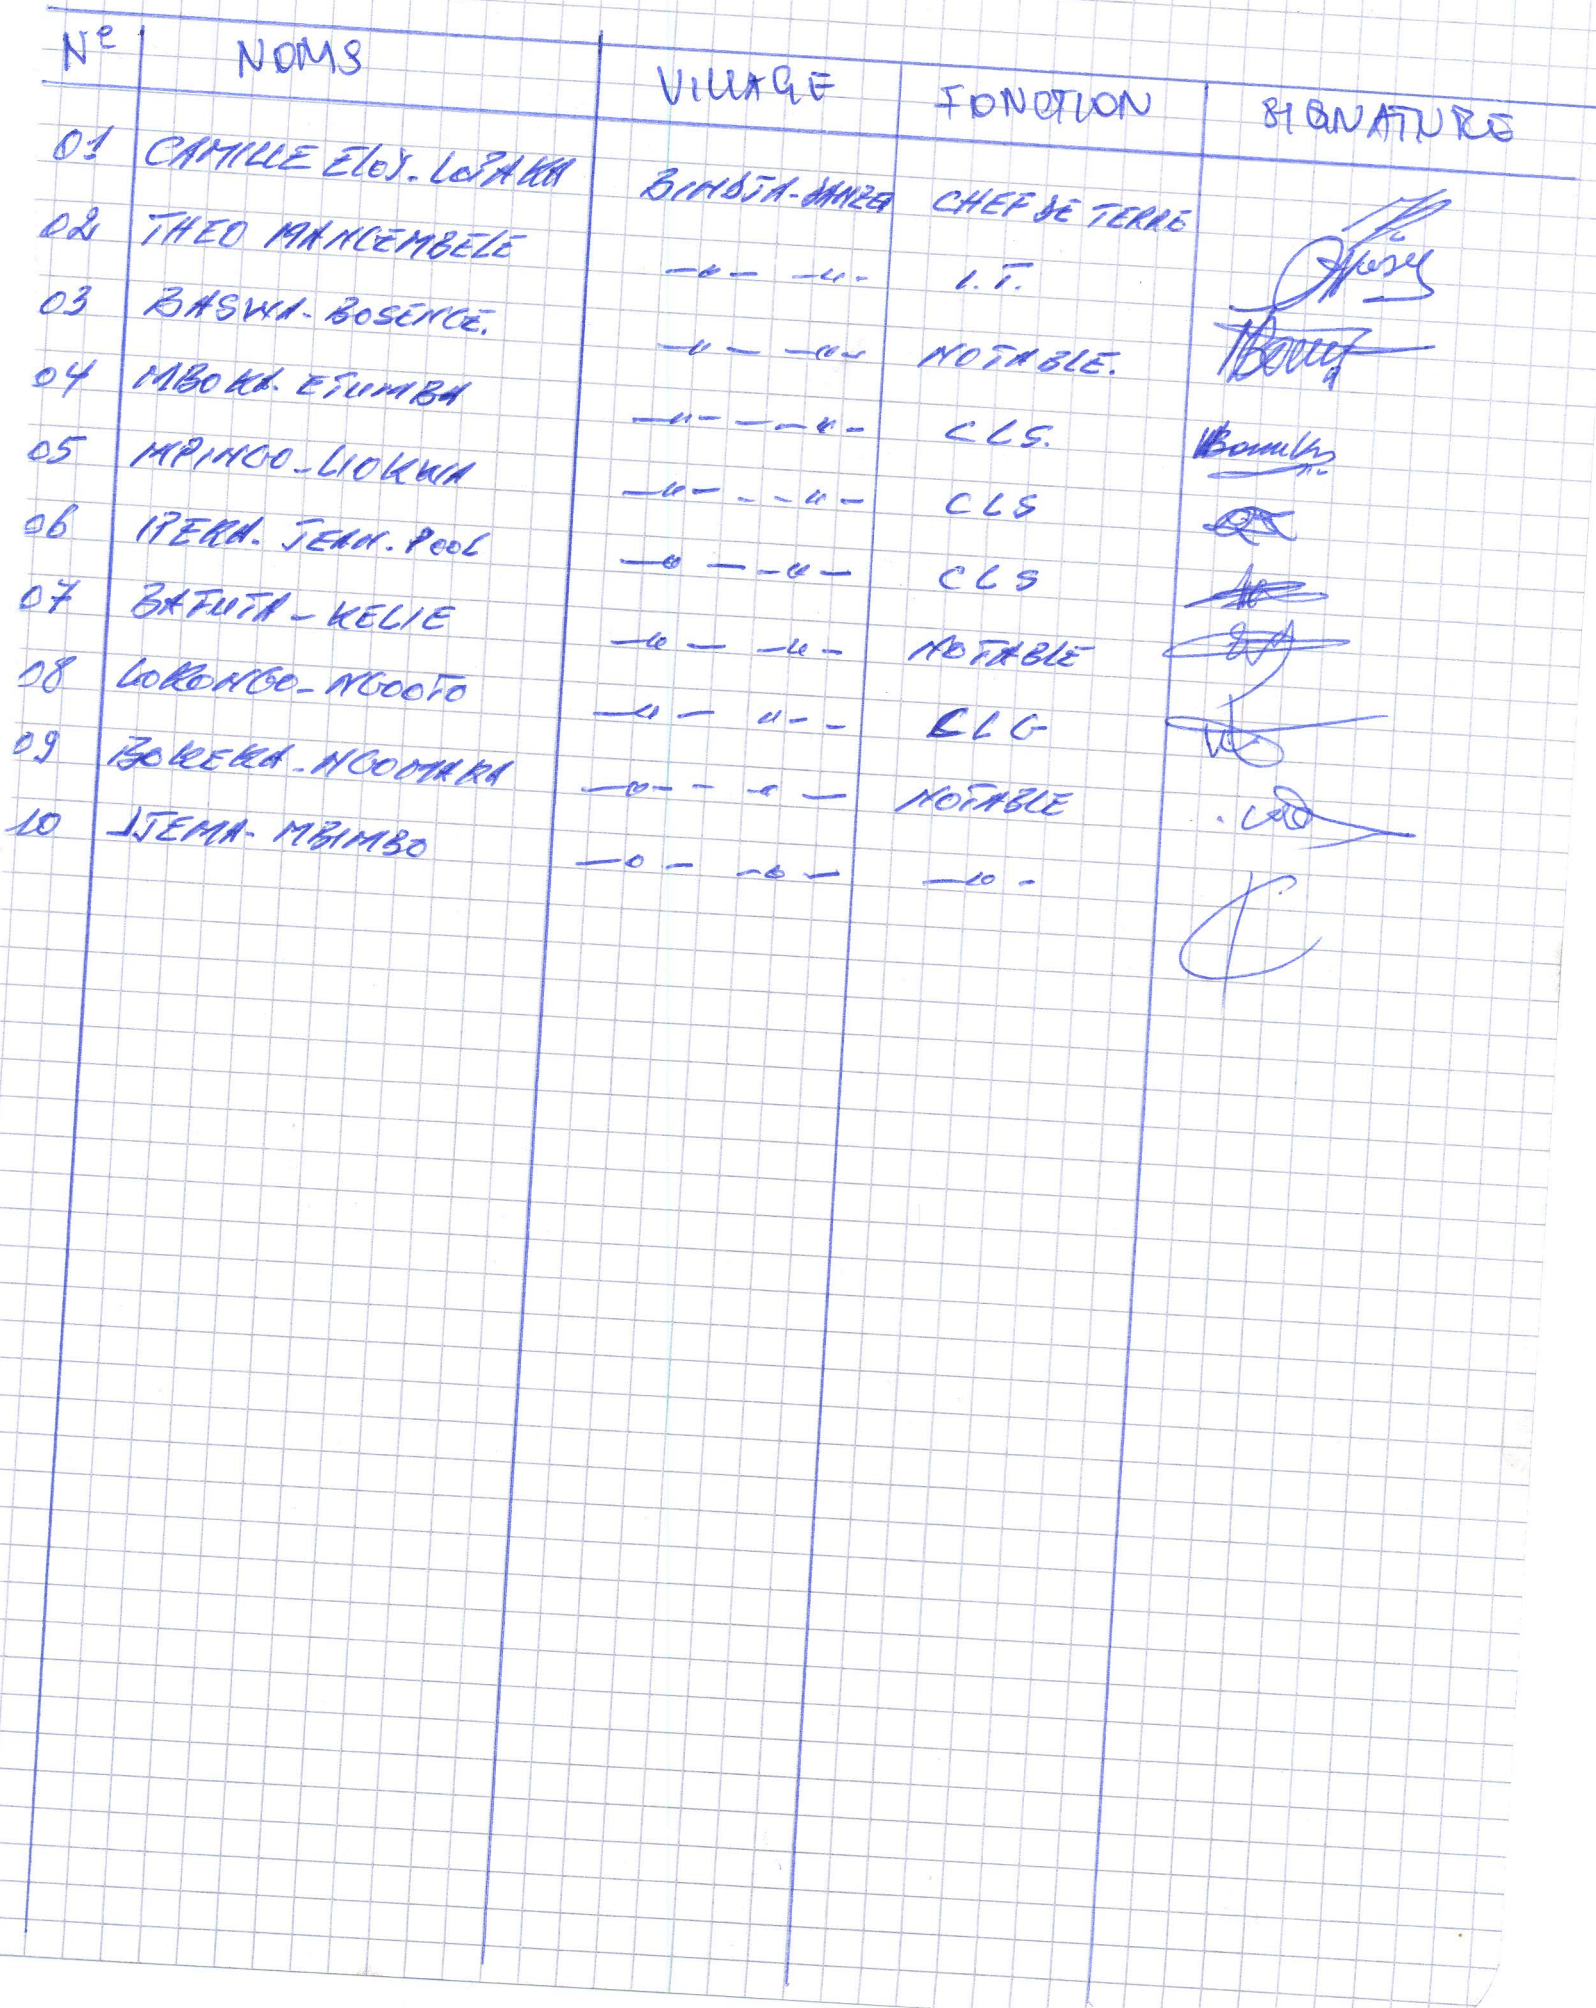 N° NOMS VILLAGE FONCTION SIGNATURE
01 CAMILLE ELOY. LOFAKA BINDJA-BANZA CHEF DE TERRE
02 THEO MANCEMBELE —"— —"— I.T.
03 BASWA-BOSENGE. —"— —"— NOTABLE.
04 MBOKA-ETUMBA —"— —"— CLS.
05 MPINGO-LIOKWA —"— —"— CLS
06 IPEKA. JEAN. POOL —"— —"— CLS
07 BAFUTA-KELIE —"— —"— NOTABLE
08 LOKONGO-NGOOTO —"— —"— CLG
09 BOKEKA-NGOOMARA —"— —"— NOTABLE
10 ITEMA-MBIMBO —"— —"— —"—